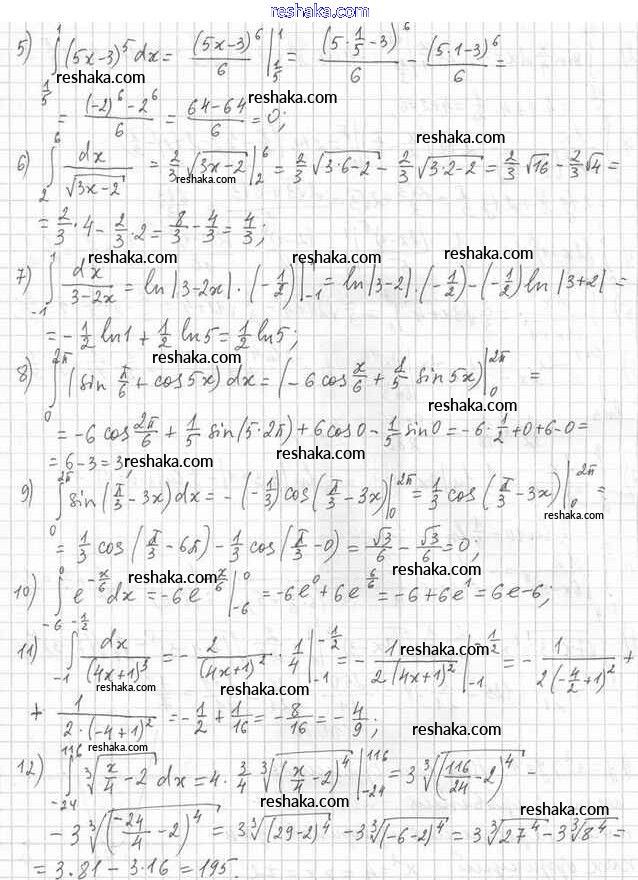 www.reshaka.com
5) ∫_{1/5}^{1} (5x-3)^5 dx = (5x-3)^6/6 |_{1/5}^{1} = (5·1/5-3)^6/6 - (5·1-3)^6/6 =
reshaka.com reshaka.com
= ((-2)^6-2^6)/6 = (64-64)/6 = 0;
reshaka.com
6) ∫_{2}^{6} dx/√(3x-2) = 2/3 √(3x-2) |_{2}^{6} = 2/3 √(3·6-2) - 2/3 √(3·2-2) = 2/3 √16 - 2/3 √4 =
reshaka.com
= 2/3·4 - 2/3·2 = 8/3 - 4/3 = 4/3;
reshaka.com reshaka.com
7) ∫_{-1}^{1} dx/(3-2x) = ln|3-2x|·(-1/2) |_{-1}^{1} = ln|3-2|·(-1/2) - (-1/2) ln|3+2| =
reshaka.com
= -1/2 ln1 + 1/2 ln5 = 1/2 ln5;
reshaka.com
8) ∫_{0}^{2π} (sin π/6 + cos5x) dx = (-6cos x/6 + 1/5 sin5x) |_{0}^{2π} =
reshaka.com
= -6cos 2π/6 + 1/5 sin(5·2π) + 6cos0 - 1/5 sin0 = -6·1/2 + 0 + 6 - 0 =
= 6-3 = 3;
reshaka.com reshaka.com
9) ∫_{0}^{2π} sin(π/3 - 3x) dx = -(-1/3) cos(π/3 - 3x) |_{0}^{2π} = 1/3 cos(π/3 - 3x) |_{0}^{2π} =
reshaka.com
= 1/3 cos(π/3 - 6π) - 1/3 cos(π/3 - 0) = √3/6 - √3/6 = 0;
reshaka.com reshaka.com
10) ∫_{-6}^{0} e^{-x/6} dx = -6e^{-x/6} |_{-6}^{0} = -6e^0 + 6e^{6/6} = -6+6e^1 = 6e-6;
reshaka.com
11) ∫_{-1}^{-1/2} dx/(4x+1)^3 = -2/(4x+1)^2 · 1/4 |_{-1}^{-1/2} = -1/(2(4x+1)^2) |_{-1}^{-1/2} = -1/(2(-4/2+1)^2) +
reshaka.com
+ 1/(2·(-4+1)^2) = -1/2 + 1/16 = -8/16 = -4/9;
reshaka.com reshaka.com
12) ∫_{-24}^{116} ∛(x/4 - 2) dx = 4·3/4 ∛((x/4 - 2)^4) |_{-24}^{116} = 3∛((116/24 - 2)^4) -
reshaka.com reshaka.com
- 3∛((-24/4 - 2)^4) = 3∛((29-2)^4) - 3∛((-6-2)^4) = 3∛(27^4) - 3∛(8^4) =
reshaka.com
= 3·81 - 3·16 = 195.
reshaka.com